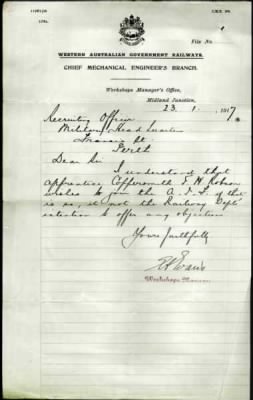 File No
WESTERN AUSTRALIAN GOVERNMENT RAILWAYS.
CHIEF MECHANICAL ENGINEER'S BRANCH.
Workshops Manager's Office,
Midland Junction,
23. 1. 1917.
Recruiting Officer
Military Head Quarters
Francis St
Perth
Dear Sir
I understand that
apprentice Coppersmith F. H. Robson
wishes to join the A.I.F. If that
is so, it is not the Railway Dept's
intention to offer any objection
Yours faithfully
Workshops Manager